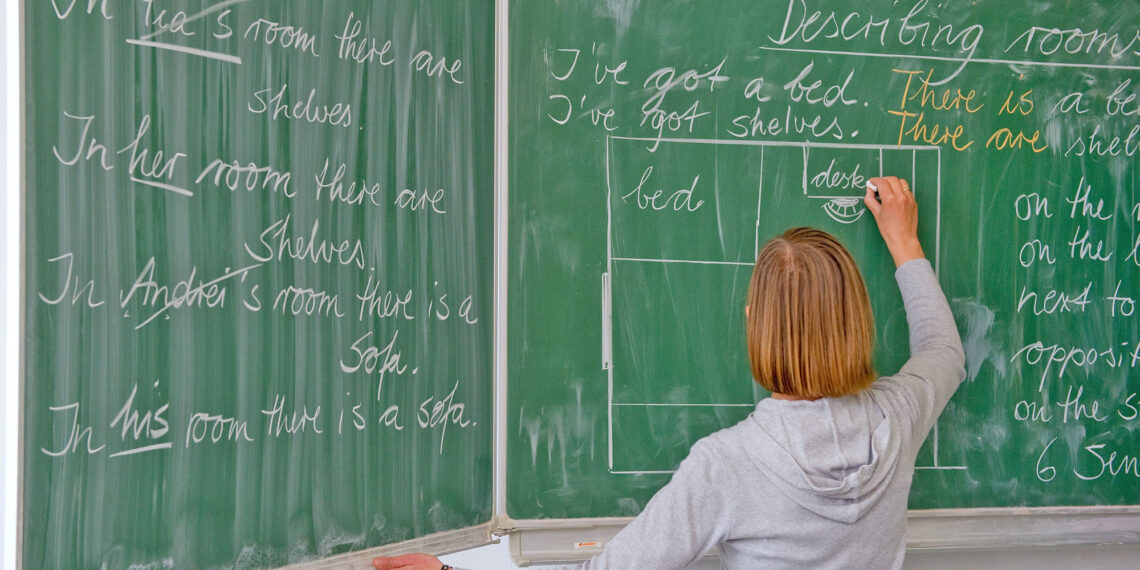 In Tea's room there are
Shelves.
In her room there are
Shelves.
In Andrei's room there is a
Sofa.
In his room there is a sofa.
Describing rooms
I've got a bed. There is a be
I've got shelves. There are shel
bed
desk
on the
on the
next to
opposit
on the s
6 Sen